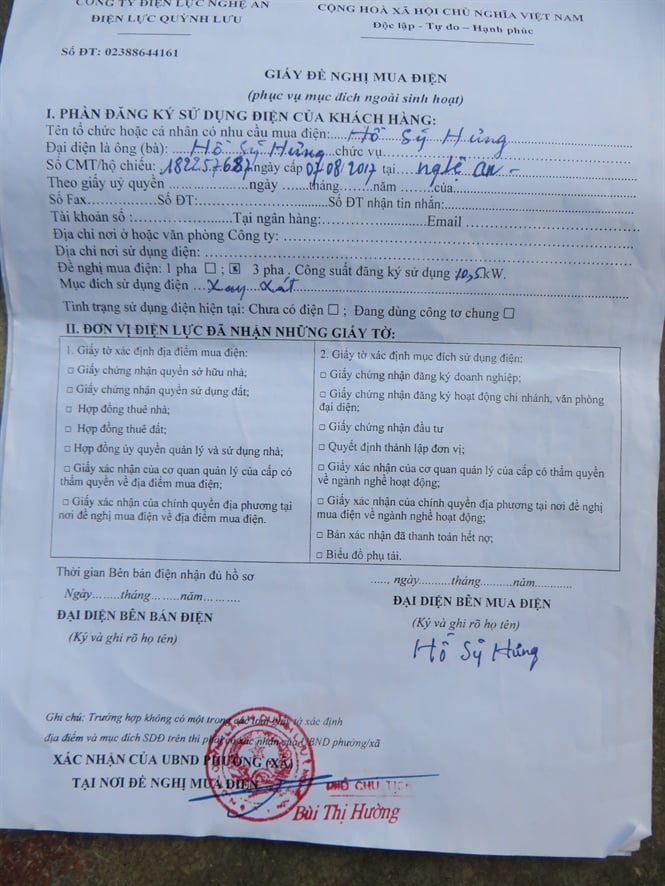 CÔNG TY ĐIỆN LỰC NGHỆ AN
ĐIỆN LỰC QUỲNH LƯU
CỘNG HOÀ XÃ HỘI CHỦ NGHĨA VIỆT NAM
Độc lập - Tự do – Hạnh phúc
Số ĐT: 02388644161
GIẤY ĐỀ NGHỊ MUA ĐIỆN
(phục vụ mục đích ngoài sinh hoạt)
I. PHẦN ĐĂNG KÝ SỬ DỤNG ĐIỆN CỦA KHÁCH HÀNG:
Tên tổ chức hoặc cá nhân có nhu cầu mua điện: Hồ Sỹ Hùng
Đại diện là ông (bà): Hồ Sỹ Hùng chức vụ
Số CMT/hộ chiếu: 182257687 ngày cấp 07/08/2017 tại nghệ an -
Theo giấy uỷ quyền ngày tháng năm của
Số Fax Số ĐT: Số ĐT nhận tin nhắn:
Tài khoản số : Tại ngân hàng: Email
Địa chỉ nơi ở hoặc văn phòng Công ty:
Địa chỉ nơi sử dụng điện:
Đề nghị mua điện: 1 pha ☐ ; ☒ 3 pha . Công suất đăng ký sử dụng 10,5 kW.
Mục đích sử dụng điện Xay Xát
Tình trạng sử dụng điện hiện tại: Chưa có điện ☐ ; Đang dùng công tơ chung ☐
II. ĐƠN VỊ ĐIỆN LỰC ĐÃ NHẬN NHỮNG GIẤY TỜ:
1. Giấy tờ xác định địa điểm mua điện:
□ Giấy chứng nhận quyền sở hữu nhà;
□ Giấy chứng nhận quyền sử dụng đất;
□ Hợp đồng thuê nhà;
□ Hợp đồng thuê đất;
□ Hợp đồng ủy quyền quản lý và sử dụng nhà;
□ Giấy xác nhận của cơ quan quản lý của cấp có
thẩm quyền về địa điểm mua điện;
□ Giấy xác nhận của chính quyền địa phương tại
nơi đề nghị mua điện về địa điểm mua điện.
2. Giấy tờ xác định mục đích sử dụng điện:
□ Giấy chứng nhận đăng ký doanh nghiệp;
□ Giấy chứng nhận đăng ký hoạt động chi nhánh, văn phòng
đại diện;
□ Giấy chứng nhận đầu tư
□ Quyết định thành lập đơn vị;
□ Giấy xác nhận của cơ quan quản lý của cấp có thẩm quyền
về ngành nghề hoạt động;
□ Giấy xác nhận của chính quyền địa phương tại nơi đề nghị
mua điện về ngành nghề hoạt động;
□ Bản xác nhận đã thanh toán hết nợ;
□ Biểu đồ phụ tải.
Thời gian Bên bán điện nhận đủ hồ sơ
Ngày........tháng........năm..........
ĐẠI DIỆN BÊN BÁN ĐIỆN
(Ký và ghi rõ họ tên)
....., ngày........tháng........năm..........
ĐẠI DIỆN BÊN MUA ĐIỆN
(Ký và ghi rõ họ tên)
Hồ Sỹ Hùng
Ghi chú: Trường hợp không có một trong các loại giấy tờ xác định
địa điểm và mục đích SDĐ trên thì phải có xác nhận của UBND phường/xã
XÁC NHẬN CỦA UBND PHƯỜNG (XÃ)
TẠI NƠI ĐỀ NGHỊ MUA ĐIỆN
PHÓ CHỦ TỊCH
Bùi Thị Hường